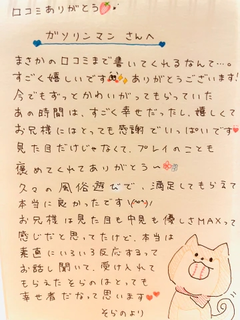 口コミありがとう
ガソリンマン さんへ
まさかの口コミまで書いてくれるなんて…。
すごく嬉しいです ありがとうございます!
今でもずっとかわいがってもらっていた
あの時間は、すごく幸せだったし、嬉しくて
お兄様にはとっても感謝でいっぱいです
見た目だけじゃなくて、プレイのことも
褒めてくれてありがとう〜
久々の風俗遊びで、満足してもらえて
本当に良かったです\(^^)/
お兄様は見た目も中身も優しさMAXって
感じだと思ってたけど、本当は
素直にいろいろ反応するって
お話し聞いて、受け入れて
もらえたそらのはとっても
幸せ者だなって思います
そらのより